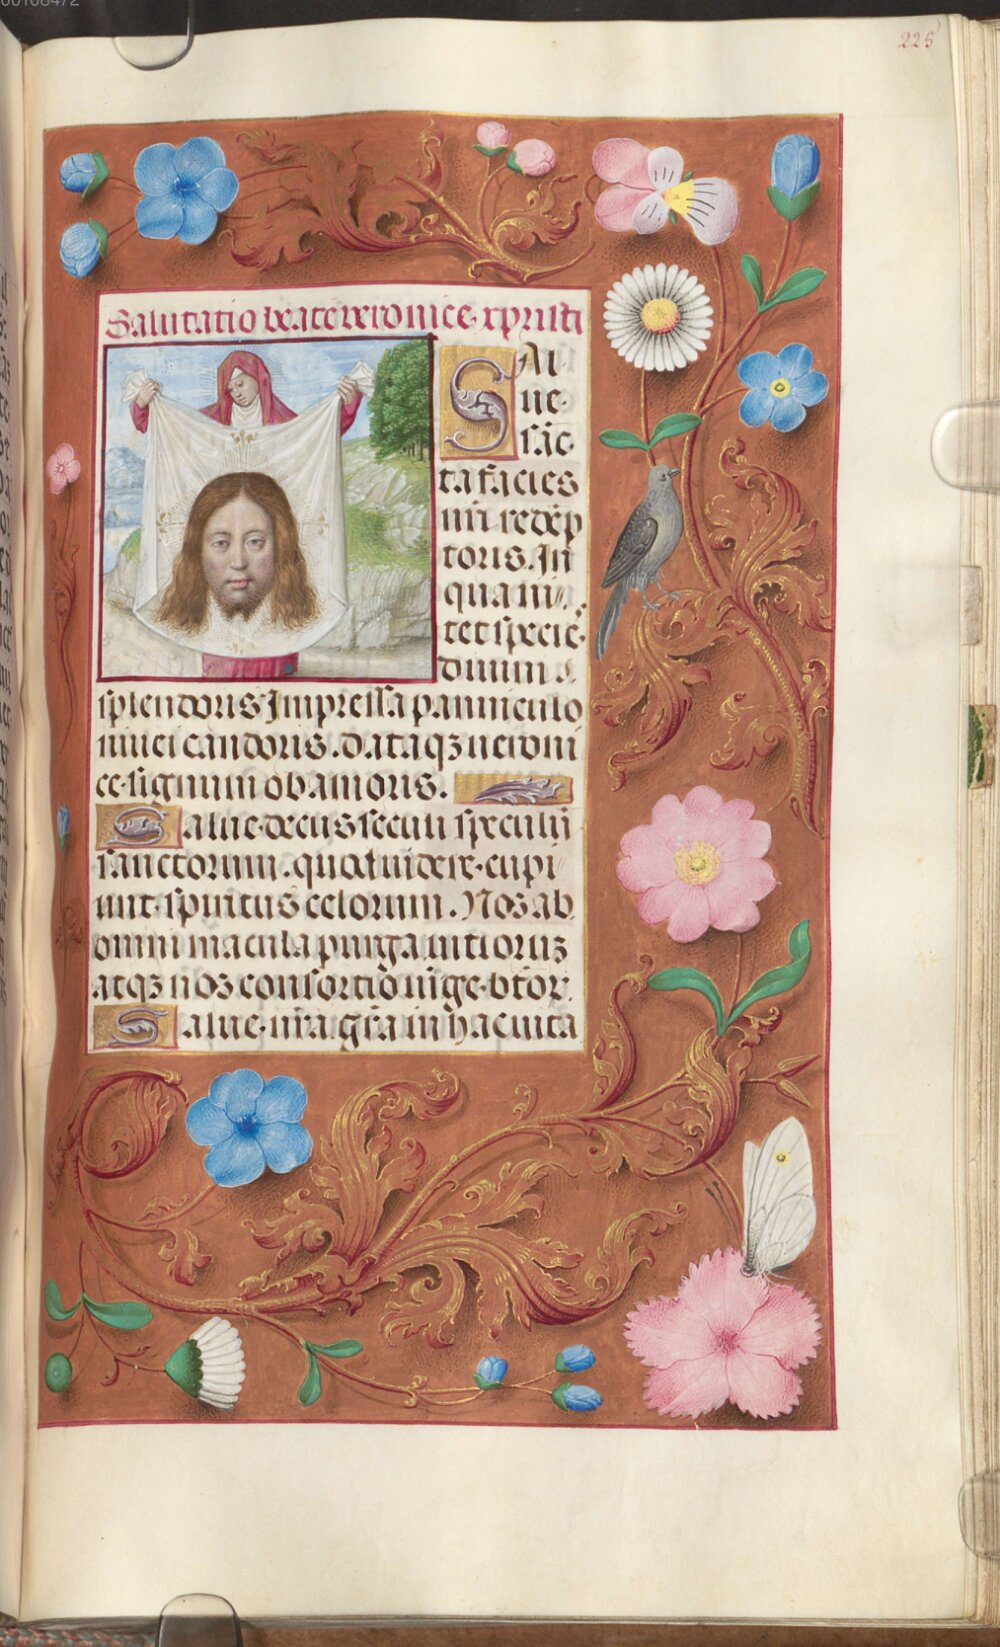 00108472
225
Salutatio beate veronice xpristi
Sal
ue
sāc
ta facies
nr̄i redēp
toris. In
qua ni
tet specie͛
diuini
splendoris Impressa panniculo
niuei candoris. Dataqꝫ ueroni
ce signum ob amoris.
Salue decus seculi speculū
sanctorum. quod uidere cupi
unt spiritus celorum. Nos ab
omni macula purga uitiorum
atqꝫ nos consortio iūge btōr.
Salue nr̄a gl̄ia in hac uita